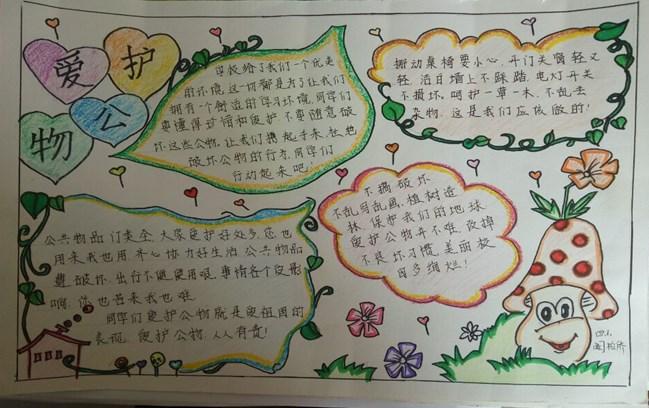 爱护
公物
学校给了我们一个优美
的环境,这一切都是为了让我们
拥有一个舒适的学习环境,同学们
要懂得珍惜和爱护,不要随意破
坏这些公物,让我们携起手来,杜绝
破坏公物的行为,同学们
行动起来吧!
搬动桌椅要小心,开门关窗轻又
轻,洁白墙上不踩踏,电灯开关
不损坏,呵护一草一木,不乱丢
杂物,这是我们应该做的!
公共物品门类全,大家爱护好处多,你也
用来我也用,齐心协力好生活,公共物品
破坏,出行不便
你也苦来我也难
同学们爱护公物就是爱祖国的
表现,爱护公物,人人有责!
不搞破坏
不乱写乱画,植树造
林,保护我们的地球
爱护公物并不难,改掉
不良坏习惯,美丽校
园多绚烂!
四.1.